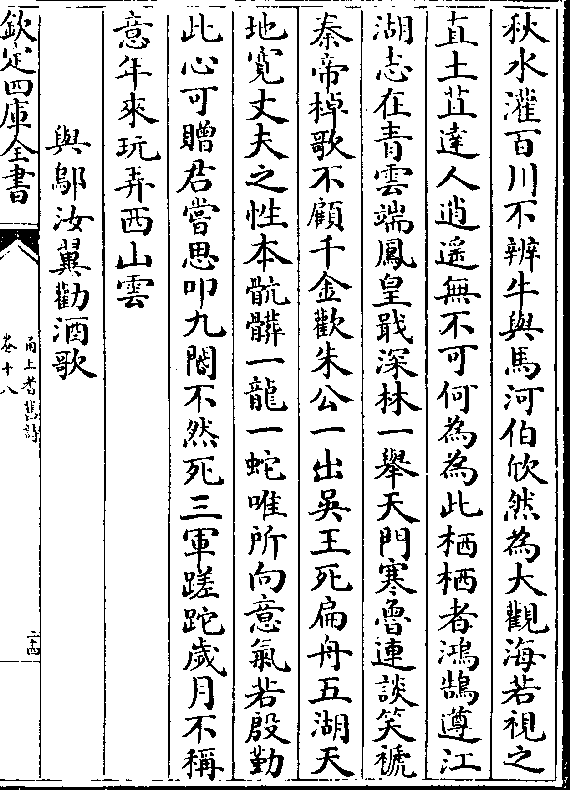 秋水灌百川不辨牛與馬河伯欣然為大觀海若視之
直土苴達人逍遥無不可何為為此栖栖者鴻鵠遵江
湖志在青雲端鳳皇戢深林一舉天門寒魯連談笑褫
秦帝棹歌不顧千金歡朱公一出吳王死扁舟五湖天
地寛丈夫之性本骯髒一龍一蛇唯所向意氣若殷勤
此心可贈君嘗思叩九閽不然死三軍蹉跎歲月不稱
意年來玩弄西山雲
與鄔汝翼勸酒歌
欽定四庫全書
甬上耆舊詩
卷十八
二十四